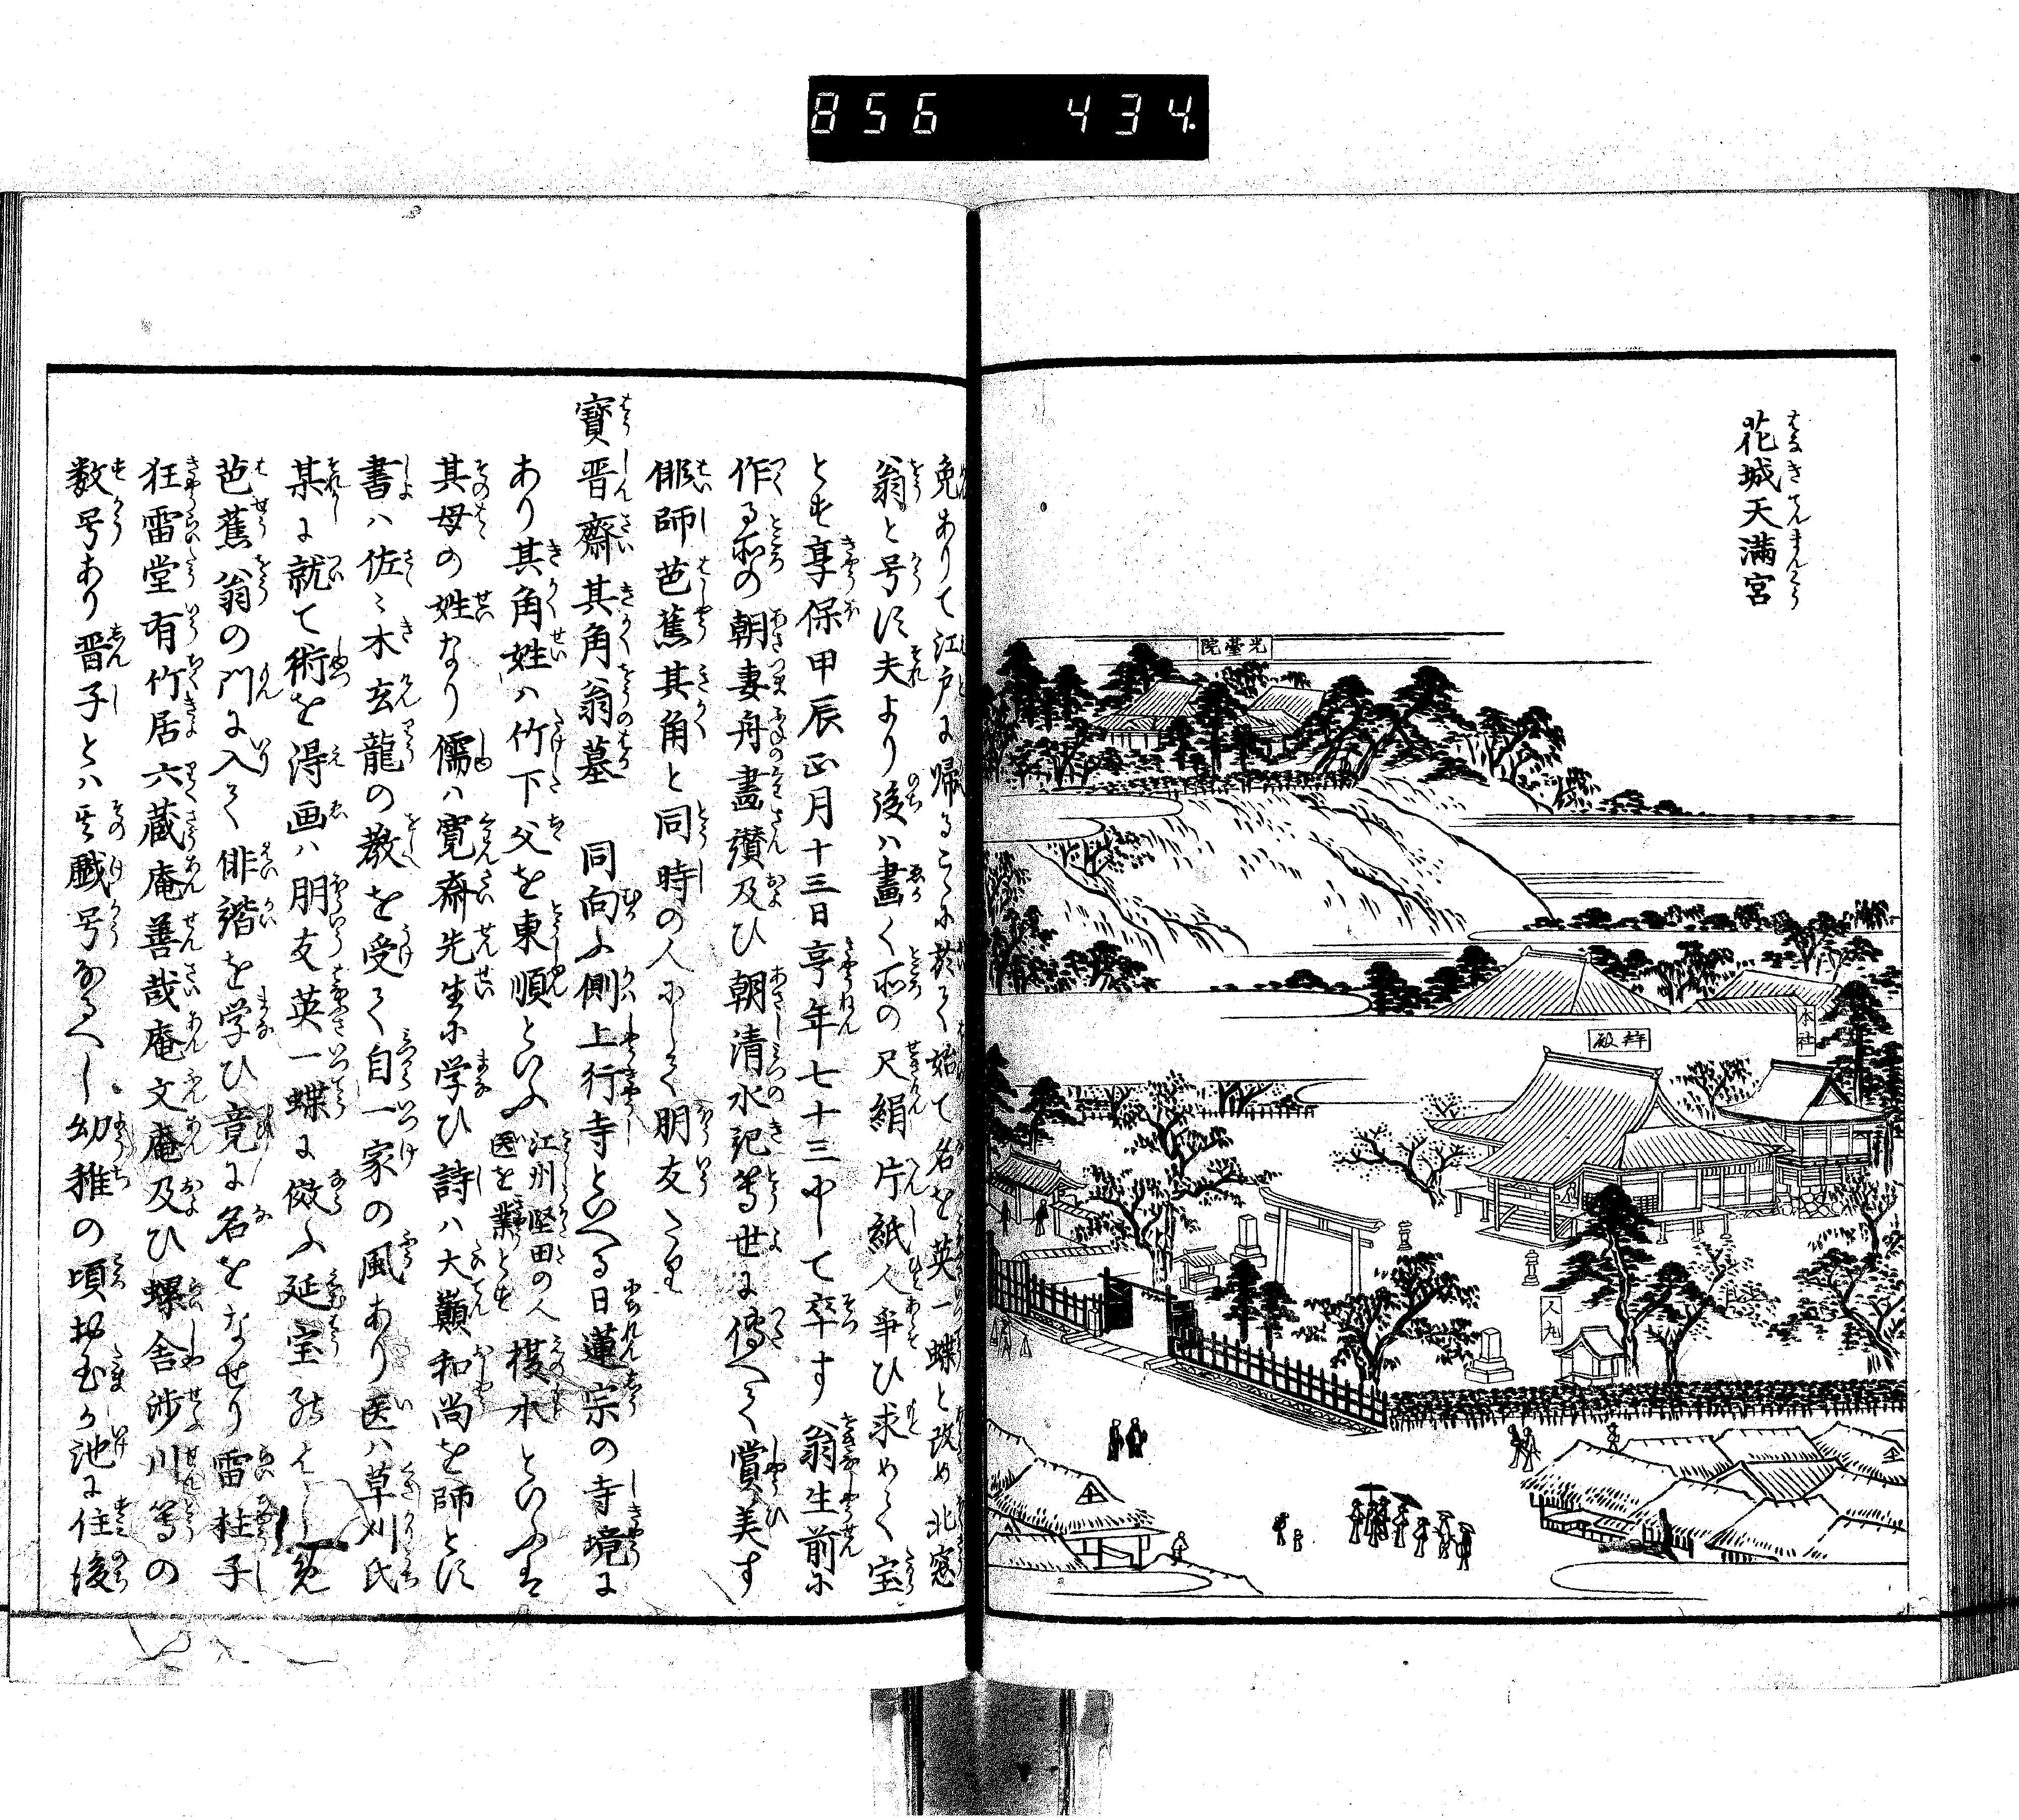 856 434.
花城天満宮
光臺院
本社
拜殿
人丸
免ありて江戸に帰るこゝに於て始て名を英一蝶と改め北窓
翁と号す夫より後ハ畫く所の尺絹片紙人争ひ求めて宝
とす享保甲辰正月十三日享年七十三にして卒す翁生前に
作る所の朝妻舟畫讃及ひ朝清水記等世に傳へて賞美す
俳師芭蕉其角と同時の人にして朋友たり
寳晋齋其角翁墓 同向ふ側上行寺といへる日蓮宗の寺境に
あり其角姓ハ竹下父を東順といふ江州堅田の人医を業とす榎本といふハ
其母の姓なり儒ハ寛齋先生に学ひ詩ハ大巓和尚を師とす
書ハ佐々木玄龍の教を受て自一家の風あり医ハ草刈氏
某に就て術を得画ハ朋友英一蝶に倣ふ延宝のはしめ
芭蕉翁の門に入て俳諧を学ひ竟に名をなせり雷柱子
狂雷堂有竹居六蔵庵善哉庵文庵及ひ螺舎渉川等の
数号あり晋子とハ其戯号なるへし幼稚の頃お玉か池に住後